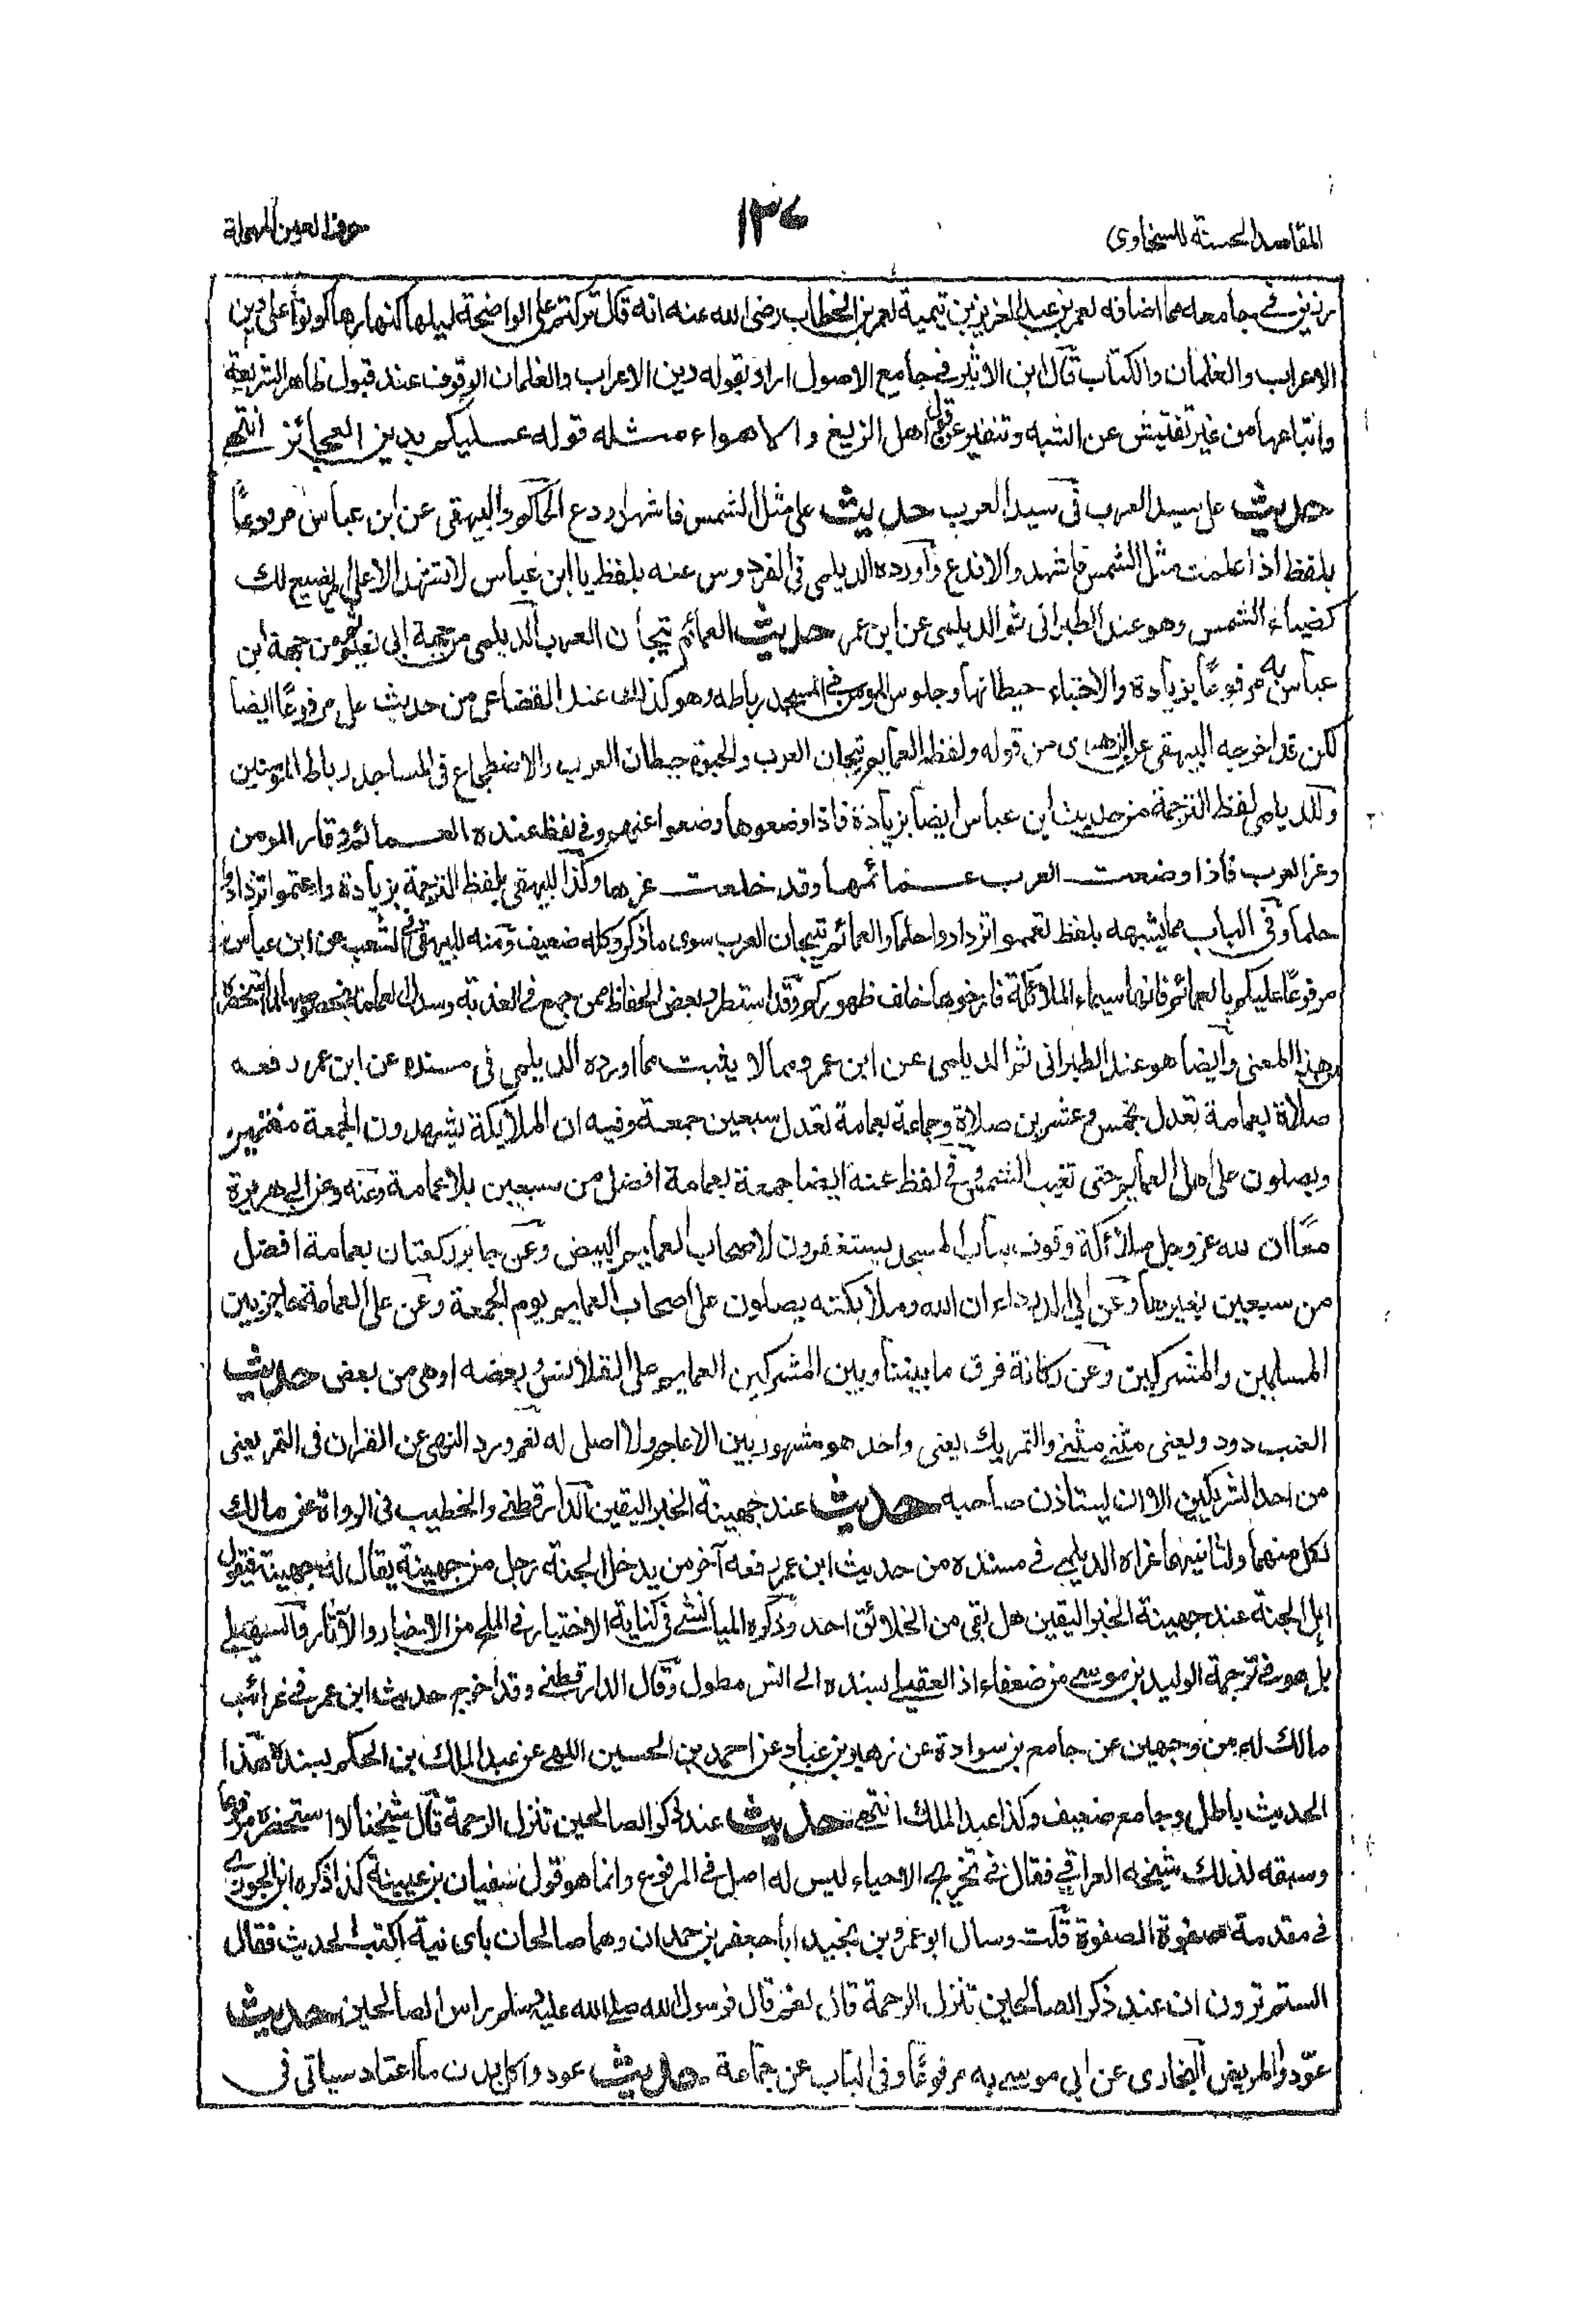 المقاصد الحسنة للسخاوى
١٣٤
حرف العين المهملة
رزين فى جامعه مما اضافه لعمر بن عبد العزيز بن تيمية لعمر بن الخطاب رضى الله عنه انه قال تركتم على الواضحة ليلها كنهارها كونوا على دين
الاعراب والغلمان والكتاب قال ابن الاثير فى جامع الاصول اراد بقوله دين الاعراب والغلمان الوقوف عند قبول ظاهر الشريعة
واتباعها من غير تفتيش عن الشبه وتنفير عن قول اهل الزيغ والاهواء مثله قوله عليكم بدين العجائز انتهى
حديث على سيد العرب فى سيد العرب حديث على مثل الشمس فاشهد او دع الحاكم والبيهقى عن ابن عباس مرفوعًا
بلفظ اذا علمت مثل الشمس فاشهد والا فدع واورده الديلمى فى الفردوس عنه بلفظ يا ابن عباس لا تشهد الا على امر يضيء لك
كضياء الشمس وهو عند الطبرانى ثم الديلمى عن ابن عمر حديث العمائم تيجان العرب الديلمى من جهة ابى نعيم ثم من جهة ابن
عباس به مرفوعًا بزيادة والاحتباء حيطانها وجلوس المومن فى المسجد رباطه وهو كذلك عند القضاعى من حديث على مرفوعًا ايضا
لكن قد اخرجه البيهقى عن الزهرى من قوله ولفظه العمايم تيجان العرب والحبوة حيطان العرب والاضطجاع فى المساجد رباط المؤمنين
وللديلمى لفظ الترجمة من حديث ابن عباس ايضا بزيادة فاذا وضعوها وضعوا عزهم وفى لفظ عنده العمائم وقار المومن
وعز العرب فاذا وضعت العرب عمائمها وقد خلعت عزها وكذا للبيهقى بلفظ الترجمة بزيادة واعتموا تزدادوا
حلما وفى الباب مما يشبهه بلفظ تعمموا تزدادوا حلما والعمائم تيجان العرب سوى ما ذكر وكله ضعيف ومنه للبيهقى فى الشعب عن ابن عباس
مرفوعًا عليكم بالعمائم فانها سيماء الملائكة فارخوها خلف ظهوركم وقد استطرد بعض الحفاظ ممن جمع فى العذبة وسدل العمامة بخصوصها لما استحضره
بهذا المعنى وايضا هو عند الطبرانى ثم الديلمى عن ابن عمر ومما لا يثبت مما اورده الديلمى فى مسنده عن ابن عمر رفعه
صلاة بعمامة تعدل بخمس وعشرين صلاة وجماعة بعمامة تعدل سبعين جمعة وفيه ان الملايكة يشهدون الجمعة معتمين
ويصلون على اهل العمايم حتى تغيب الشمس وفى لفظ عنه ايضا جمعة بعمامة افضل من سبعين بلا عمامة وعنه وعن ابى هريرة
معًا ان لله عز وجل ملائكة وقوف بباب المسجد يستغفرون لاصحاب العمايم البيض وعن جابر ركعتان بعمامة افضل
من سبعين بغيرها وعن ابى الدرداء ان الله وملايكته يصلون على اصحاب العمايم يوم الجمعة وعن على العمامة حاجز بين
المسلمين والمشركين وعن ركانة فرق ما بيننا وبين المشركين العمايم على القلانس وبعضه اوهى من بعض حديث
العنب دود ويعنى مثنى مثنى والتمر يك يعنى واحد هو مشهور بين الاعاجم ولا اصل له نعم ورد النهى عن القران فى التمر يعنى
من احد الشريكين الا ان ليستاذن صاحبه حديث عند جهينة الخبر اليقين الدارقطنى والخطيب فى الرواة عن مالك
لكل منهما ولثانيهما عزاه الديلمى فى مسنده من حديث ابن عمر رفعه آخر من يدخل الجنة رجل من جهينة يقال له جهينة فيقول
اهل الجنة عند جهينة الخبر اليقين هل بقى من الخلائق احد وذكره الميانشى فى كتابه الاختيار فى الملح من الاخبار والآثار والسهيلى
بل هو فى ترجمة الوليد بن موسى من ضعفاء العقيلى بسنده الى انس مطول وقال الدارقطنى وقد اخرج حديث ابن عمر فى غرائب
مالك له من وجهين عن جامع بن سوادة عن زهير بن عباد عن احمد بن الحسين اللهبى عن عبد الملك بن الحكم بسنده هذا
الحديث باطل وجامع ضعيف وكذا عبد الملك انتهى حديث عند ذكر الصالحين تنزل الرحمة قال شيخنا لا استحضره مرفوعا
وسبقه لذلك شيخه العراقى فقال فى تخريج الاحياء ليس له اصل فى المرفوع وانما هو قول سفيان بن عيينة كذا ذكره ابن الجوزى
فى مقدمة صفوة الصفوة قلت وسال ابو عمرو بن نجيد ابا جعفر بن حمدان وهما صالحان باى نية اكتب الحديث فقال
الستم ترون ان عند ذكر الصالحين تنزل الرحمة قال نعم قال فرسول الله صلى الله عليه وسلم راس الصالحين حديث
عودوا المريض البخارى عن ابى موسى به مرفوعًا وفى الباب عن جماعة حديث عودوا كل بدن ما اعتاد سياتى فى